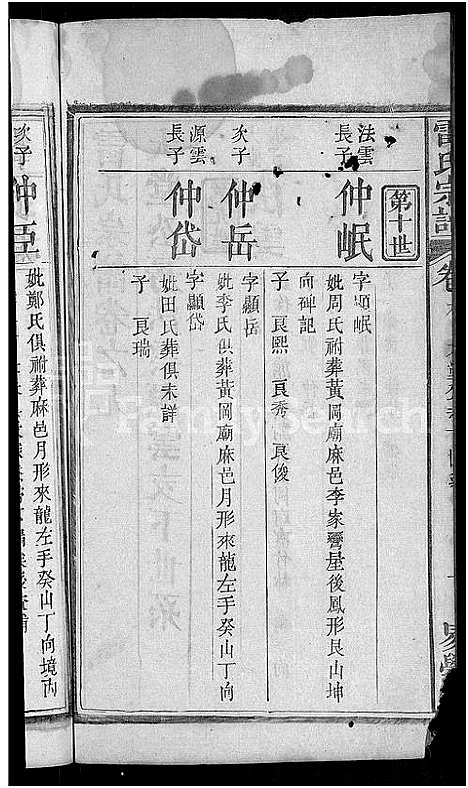 雷氏宗譜
卷
第十世
法雲長子
仲岷
字顯岷
妣周氏祔葬黃岡廟麻邑李家灣屋後鳳形艮山坤
向碑記
子 良熙 良秀 良俊
次子
仲岳
字顯岳
妣李氏俱葬黃岡廟麻邑月形來龍左手癸山丁向
源雲長子
仲岱
字顯岱
妣田氏葬俱未詳
子 良瑞
次子
仲
妣鄭氏俱祔葬麻邑月形來龍左手癸山丁向境內
FamilySearch